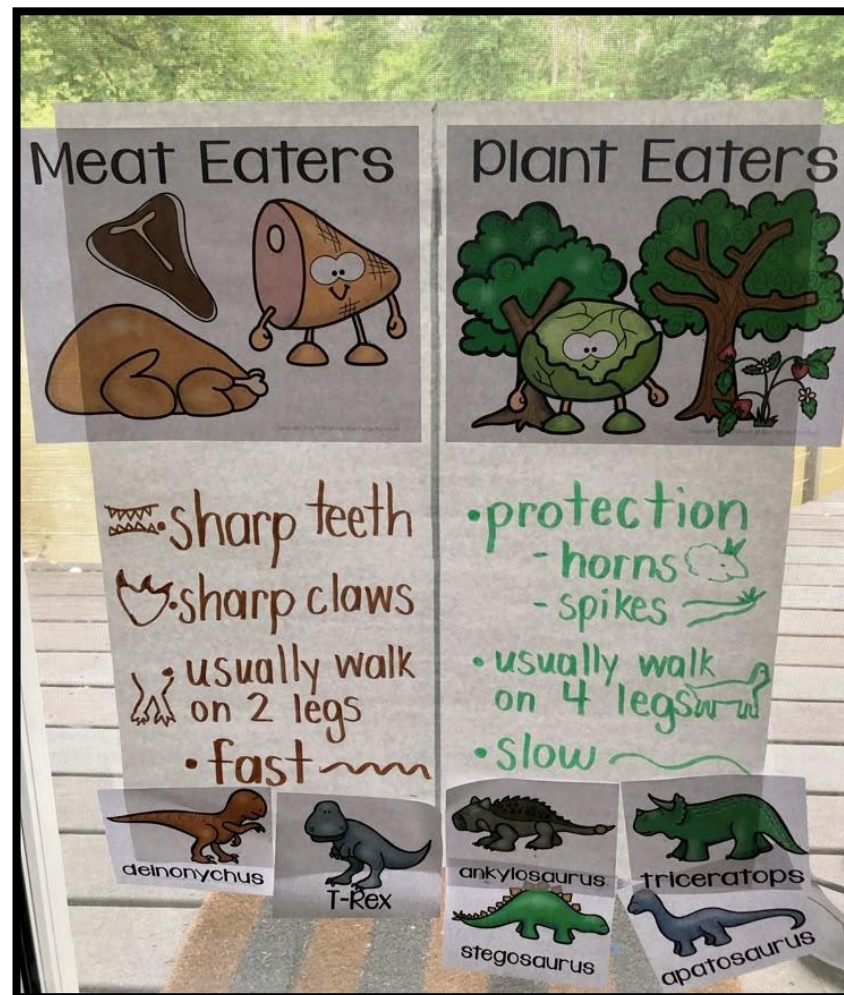 Meat Eaters
• sharp teeth
• sharp claws
• usually walk
on 2 legs
• fast
deinonychus
T-Rex
Plant Eaters
• protection
- horns
- spikes
• usually walk
on 4 legs
• slow
ankylosaurus
triceratops
stegosaurus
apatosaurus